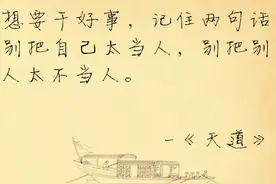 想要干好事，记住两句话
别把自己太当人，别把别
人太不当人。
-《天道》